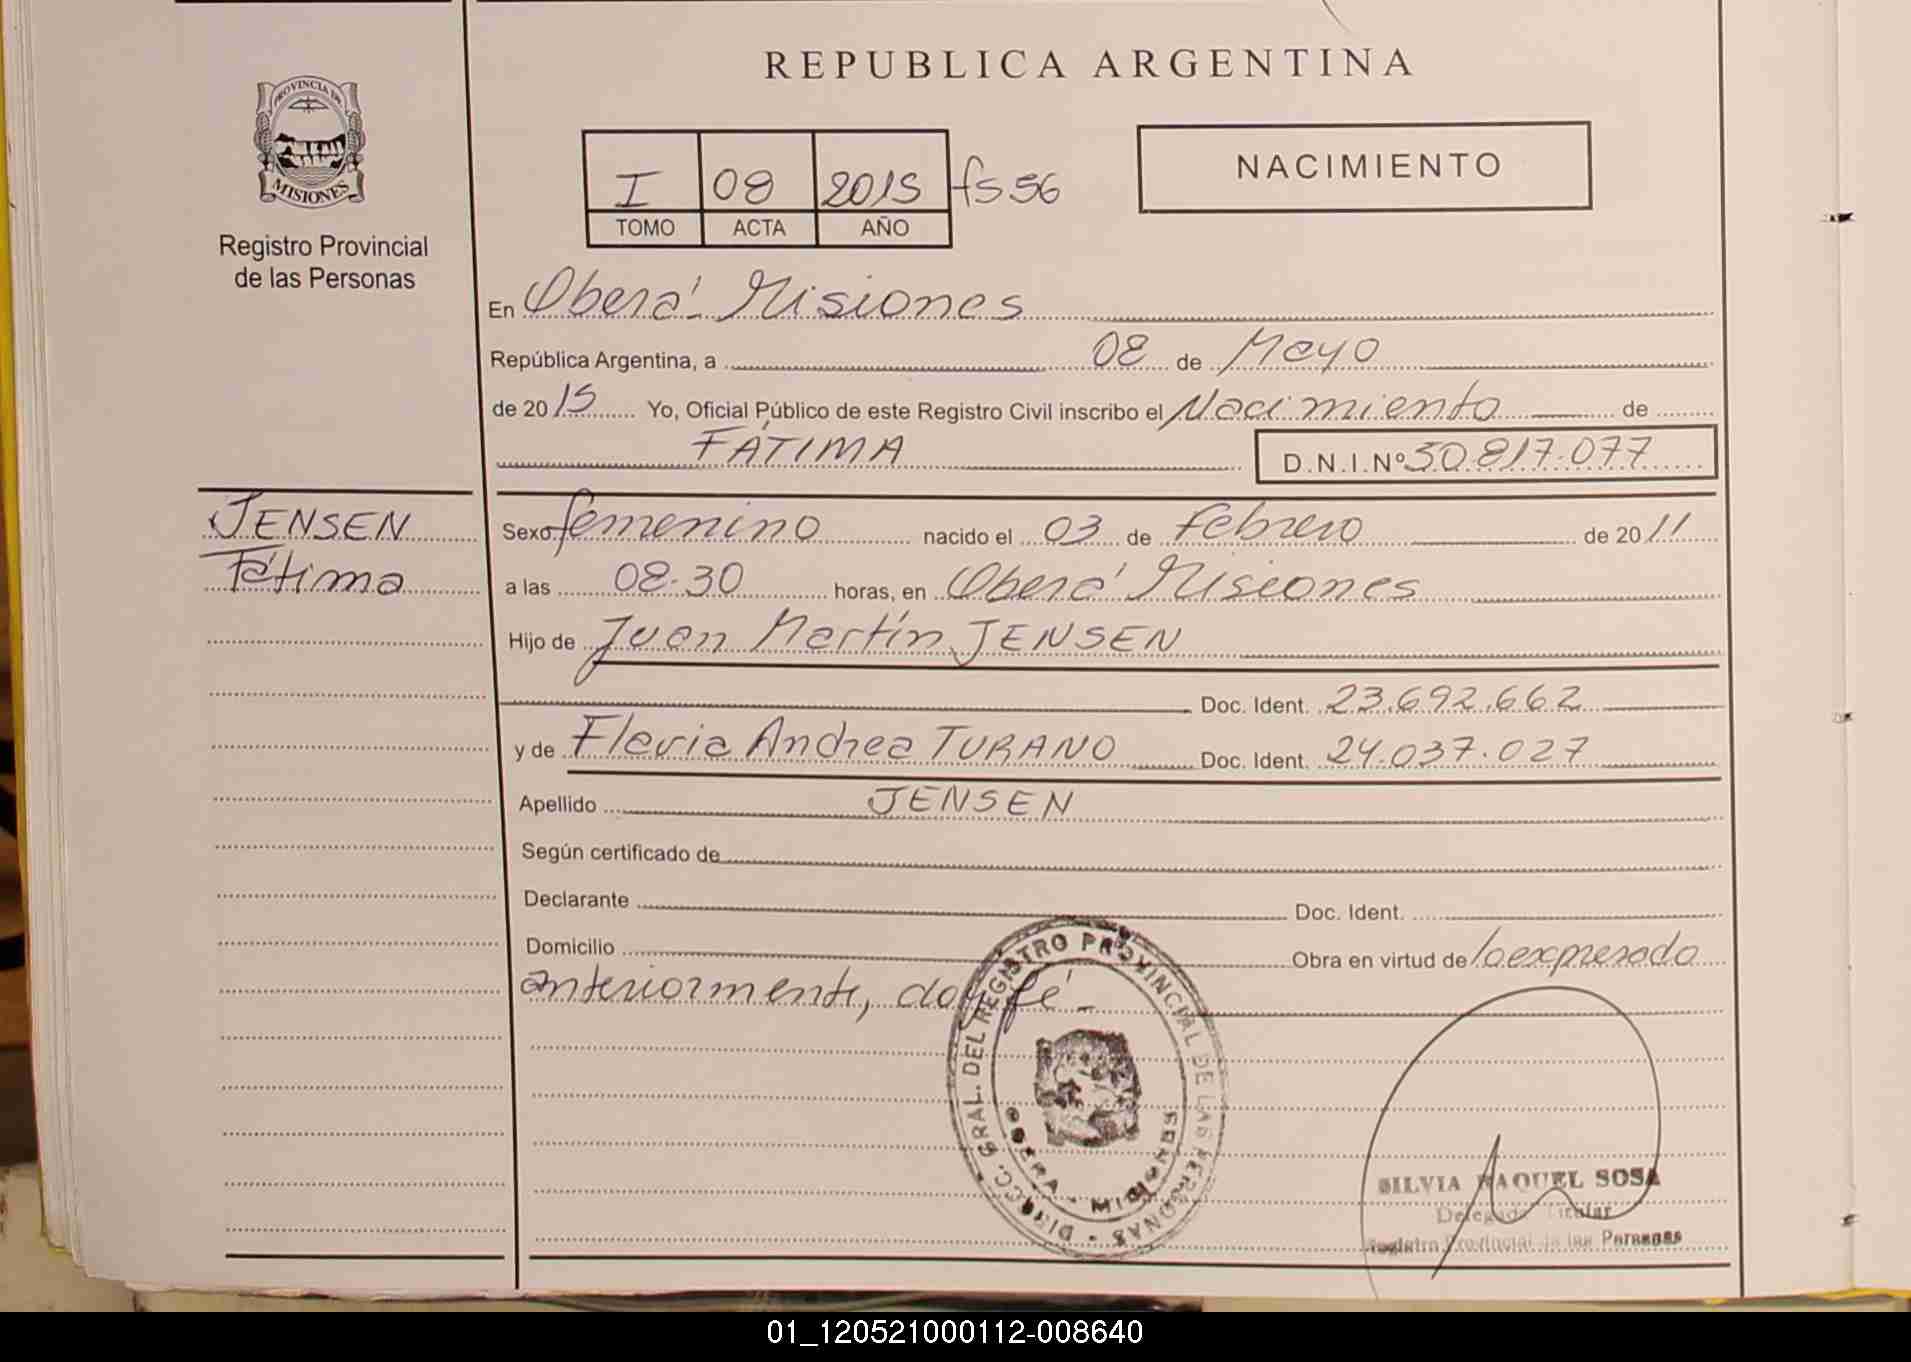 REPUBLICA ARGENTINA
PROVINCIA DE
MISIONES
Registro Provincial
de las Personas
I 08 2015 fs 56
TOMO ACTA AÑO
NACIMIENTO
En Oberá - Misiones
República Argentina, a 08 de Mayo
de 2015 Yo, Oficial Público de este Registro Civil inscribo el Nacimiento de
FÁTIMA D.N.I.Nº 50.817.077
JENSEN
Fátima
Sexo femenino nacido el 03 de Febrero de 2011
a las 08.30 horas, en Oberá Misiones
Hijo de Juan Martín JENSEN
Doc. Ident. 23.692.662
y de Flavia Andrea TURANO Doc. Ident. 24.037.027
Apellido JENSEN
Según certificado de
Declarante Doc. Ident.
Domicilio Obra en virtud de lo expresado
anteriormente, doy fé -
DIRECC. GRAL. DEL REGISTRO PROVINCIAL DE LAS PERSONAS -
OBERA - MISIONES
SILVIA RAQUEL SOSA
Delegada Titular
Registro Provincial de las Personas
01_120521000112-008640